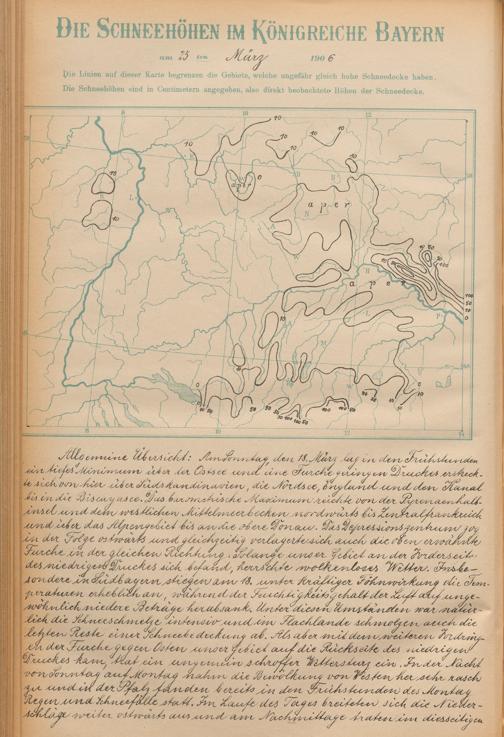 DIE SCHNEEHÖHEN IM KÖNIGREICHE BAYERN
am 25 ten März 1906
Die Linien auf dieser Karte begrenzen die Gebiete, welche ungefähr gleich hohe Schneedecke haben.
Die Schneehöhen sind in Centimetern angegeben, also direkt beobachtete Höhen der Schneedecke.
aper
aper
aper
Allgemeine Übersicht: Am Sonntag, den 18. März lag in den Frühstunden
ein tiefes Minimum über der Ostsee und eine Furche geringen Druckes erstreck-
te sich von hier über Südskandinavien, die Nordsee, England und den Kanal
bis in die Biscayasee. Das barometrische Maximum reichte von der Pyrenaenhalb-
insel und dem westlichen Mittelmeerbecken nordwärts bis Zentralfrankreich
und über das Alpengebiet bis an die obere Donau. Das Depressionszentrum zog
in der Folge ostwärts und gleichzeitig verlagerte sich auch die oben erwähnte
Furche in der gleichen Richtung. Solange unser Gebiet an der Vorderseite
des niedrigen Druckes sich befand, herrschte wolkenloses Wetter. Insbe-
sondere in Südbayern stiegen am 18. unter kräftiger Föhnwirkung die Tem-
peraturen erheblich an, während der Feuchtigkeitsgehalt der Luft auf unge-
wöhnlich niedere Beträge herabsank. Unter diesen Umständen war natür-
lich die Schneeschmelze intensiv und im Flachlande schmolzen auch die
letzten Reste einer Schneebedeckung ab. Als aber mit dem weiteren Vordrin-
gen der Furche gegen Osten unser Gebiet auf die Rückseite des niedrigen
Druckes kam, trat ein ungemein schroffer Wettersturz ein. In der Nacht
von Sonntag auf Montag nahm die Bewölkung von Westen her sehr rasch
zu und in der Pfalz fanden bereits in den Frühstunden des Montag
Regen und Schneefälle statt. Im Laufe des Tages breiteten sich die Nieder-
schläge weiter ostwärts aus und am Nachmittage traten im diesseitigen